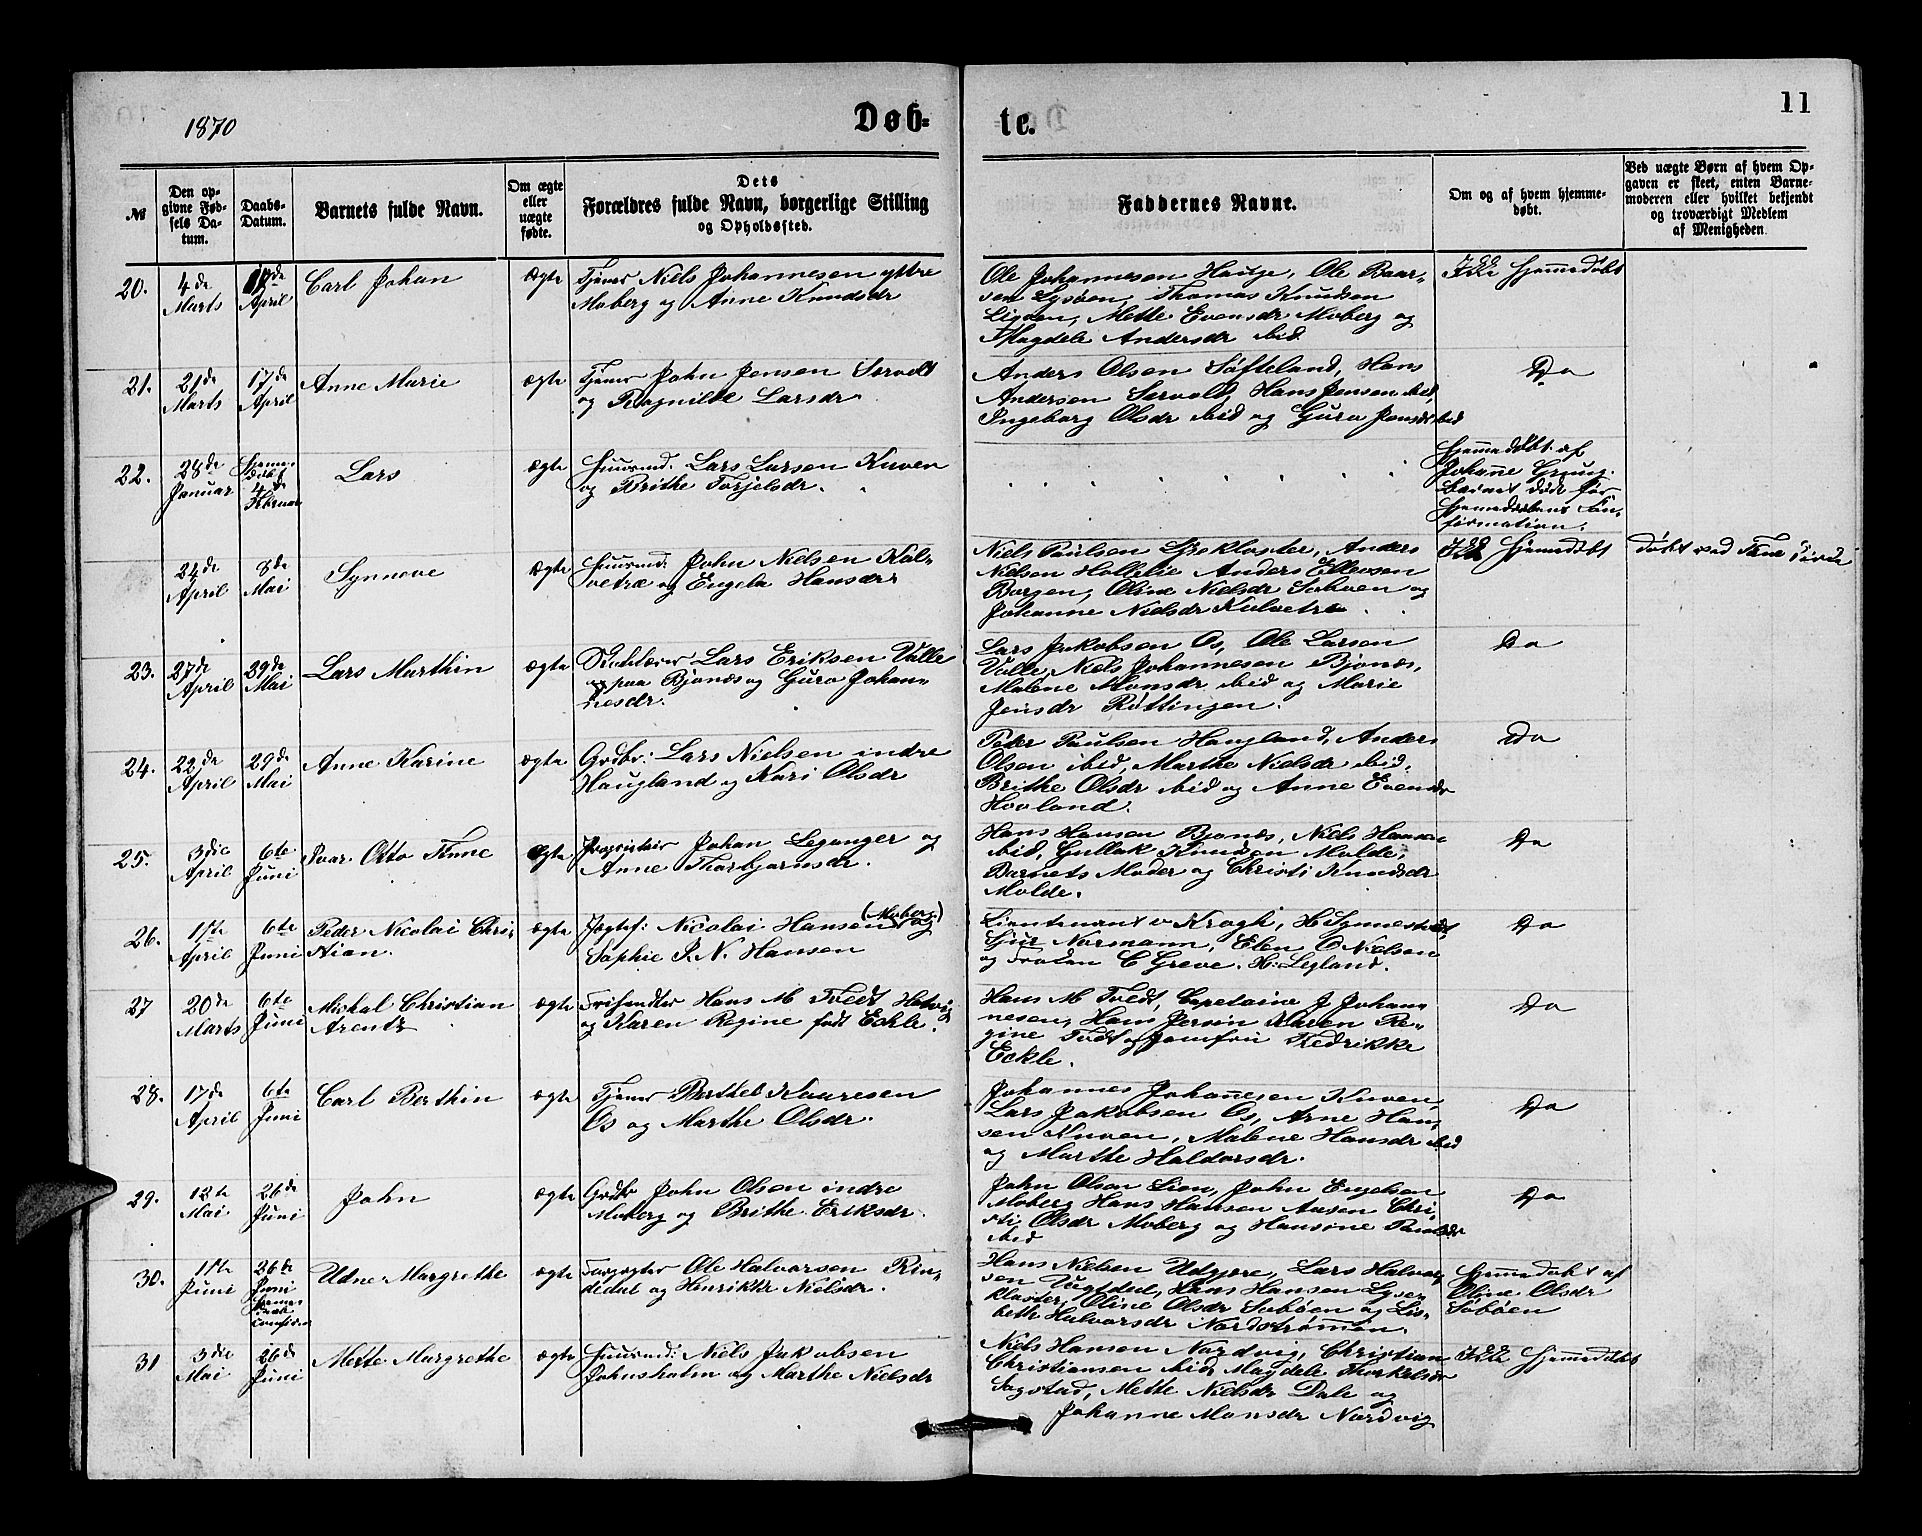 1870
Døb=
te.
11
№
Den op-
givne Fød-
sels Da-
tum.
Daabs-
Datum.
Barnets fulde Navn.
Om ægte
eller
uægte
fødte.
Dets
Forældres fulde Navn, borgerlige Stilling
og Opholdssted.
Faddernes Navne.
Om og af hvem hjemme-
døbt.
Ved uægte Børn af hvem Op-
gaven er skeet, enten Barne-
moderen eller hvilket bekjendt
og troværdigt Medlem
af Menigheden
20.
4de
Marts
17de
April
Carl Johan
Ægte
Tjener Niels Johannesen yttre
Moberg og Anne Knudsdr
Ole Johannesen Ole Baar-
sen Lysøen, Thomas Knudsen
Mette Evensdr Moberg og
Magdele Andersdr ibid.
Ikke hjemmedøbt
21.
21de
Marts
17de
April
Anne Marie
ægte
Tjener John Jensen
og Ragnilde Larsdr.
Anders Olsen Søfteland, Hans
Andersen Hans Jensen ibid,
Ingeborg Olsdr ibid og Guro Jensdr ibid
Do
22.
28de
Januar
Hjemme-
døbt
4de
Februar
Lars
ægte
Huusmd: Lars Larsen Kuven
og Brithe Torjelsdr.
Hjemmedøbt af
Johanne
Barnet døde før
Hjemmedaabens Con-
firmation.
24de
April
8de
Mai
Synneve
ægte
Huusmd: John Nielsen Kal-
vetræ og Engela Hansdr
Niels Paulsen Lysekloster, Anders
Nielsen Anders Ellevsen
Borgen, Oline Nielsdr Søhoen og
Johanne Nielsdr Kalvetræ
Ikke Hjemmedøbt
døbt ved Fane Kirke
23.
27de
April
29de
Mai
Lars Marthin
ægte
Lars Eriksen Valle
paa Bjonæs og Guro Johan-
nesdr.
Lars Jakobsen Os, Ole Larsen
Valle, Niels Johannesen Bjonæs,
Malene Monsdr ibid og Marie
Jensdr Røttingen.
Do
24.
22de
April
29de
Mai
Anne Karine
ægte
Grdbr: Lars Nielsen indre
Haugland og Kari Olsdr
Peder Paulsen Haugland, Anders
Olsen ibid, Marthe Nielsdr ibid.
Brithe Olsdr ibid og Anne Evensdr
Hovland.
Do
25.
3die
April
6te
Juni
Ivar Otto Finne
ægte
Proprietær Johan Leganger og
Anne Thorbjornsdr.
Hans Hansen Bjonæs, Niels Hansen
ibid, Gullak Knudsen Molde,
Barnets Moder og Christi Knudsdr
Molde.
Do
26.
1ste
April
6te
Juni
Peder Nicolai Chri-
stian.
ægte
Jægtef: Nicolai Hansen (Moberg) og
Sophie P. N. Hansen
Lieutenant v Krogh, H Synnestvedt,
Sjur Normann, Elen O Nielsen
og Frøken C Greve. H: Legland.
Do
27
20de
Marts
6te
Juni
Michal Christian
Arentz
ægte
Hans M Tvedt Hatvig
og Karen Regine født Eckle.
Hans M Tvedt, Capetaine J Johan-
nesen, Hans Karen Re-
gine Tvedt og Jomfru Fredrikke
Eckle.
Do
28.
17de
April
6te
Juni
Carl Berthin
ægte
Tjener Berthel Kaaresen
Os og Marthe Olsdr.
Johannes Johanesen Kuven,
Lars Jakobsen Os, Arne Han-
sen Kuven, Malene Hansdr ibid
og Marthe Haldorsdr.
Do
29.
12te
Mai
26de
Juni
John
ægte
Grdbr John Olsen indre
Moberg og Brithe Eriksdr.
John Olsen Lien, John Engelsen
Moberg Hans Hansen Aasen Chri-
sti Olsdr Moberg og Hansine Paulsdr
ibid
Do
30.
11te
Juni
26de
Juni
Hjemme-
daab
Udne Margrethe
ægte
Ole Halvorsen Rin-
dedal og Henrikke Nielsdr.
Hans Nielsen Lars Halvor-
sen Hans Hansen Lyse-
kloster, Oline Olsdr Søbøen og Lis-
beth Halvorsdr Nordstrømen.
Hjemmedøbt af
Oline Olsdr
Søbøen
31
3die
Mai
26de
Juni
Mette Margrethe
ægte
Huusmd: Niels Jakobsen
Johnsholm og Marthe Nielsdr
Niels Hansen Nordvig, Christian
Christiansen ibid, Magdele Thorkelsdr
Sagstad, Mette Nielsdr Dale og
Johanne Monsdr Nordvig
Ikke Hjemmedøbt